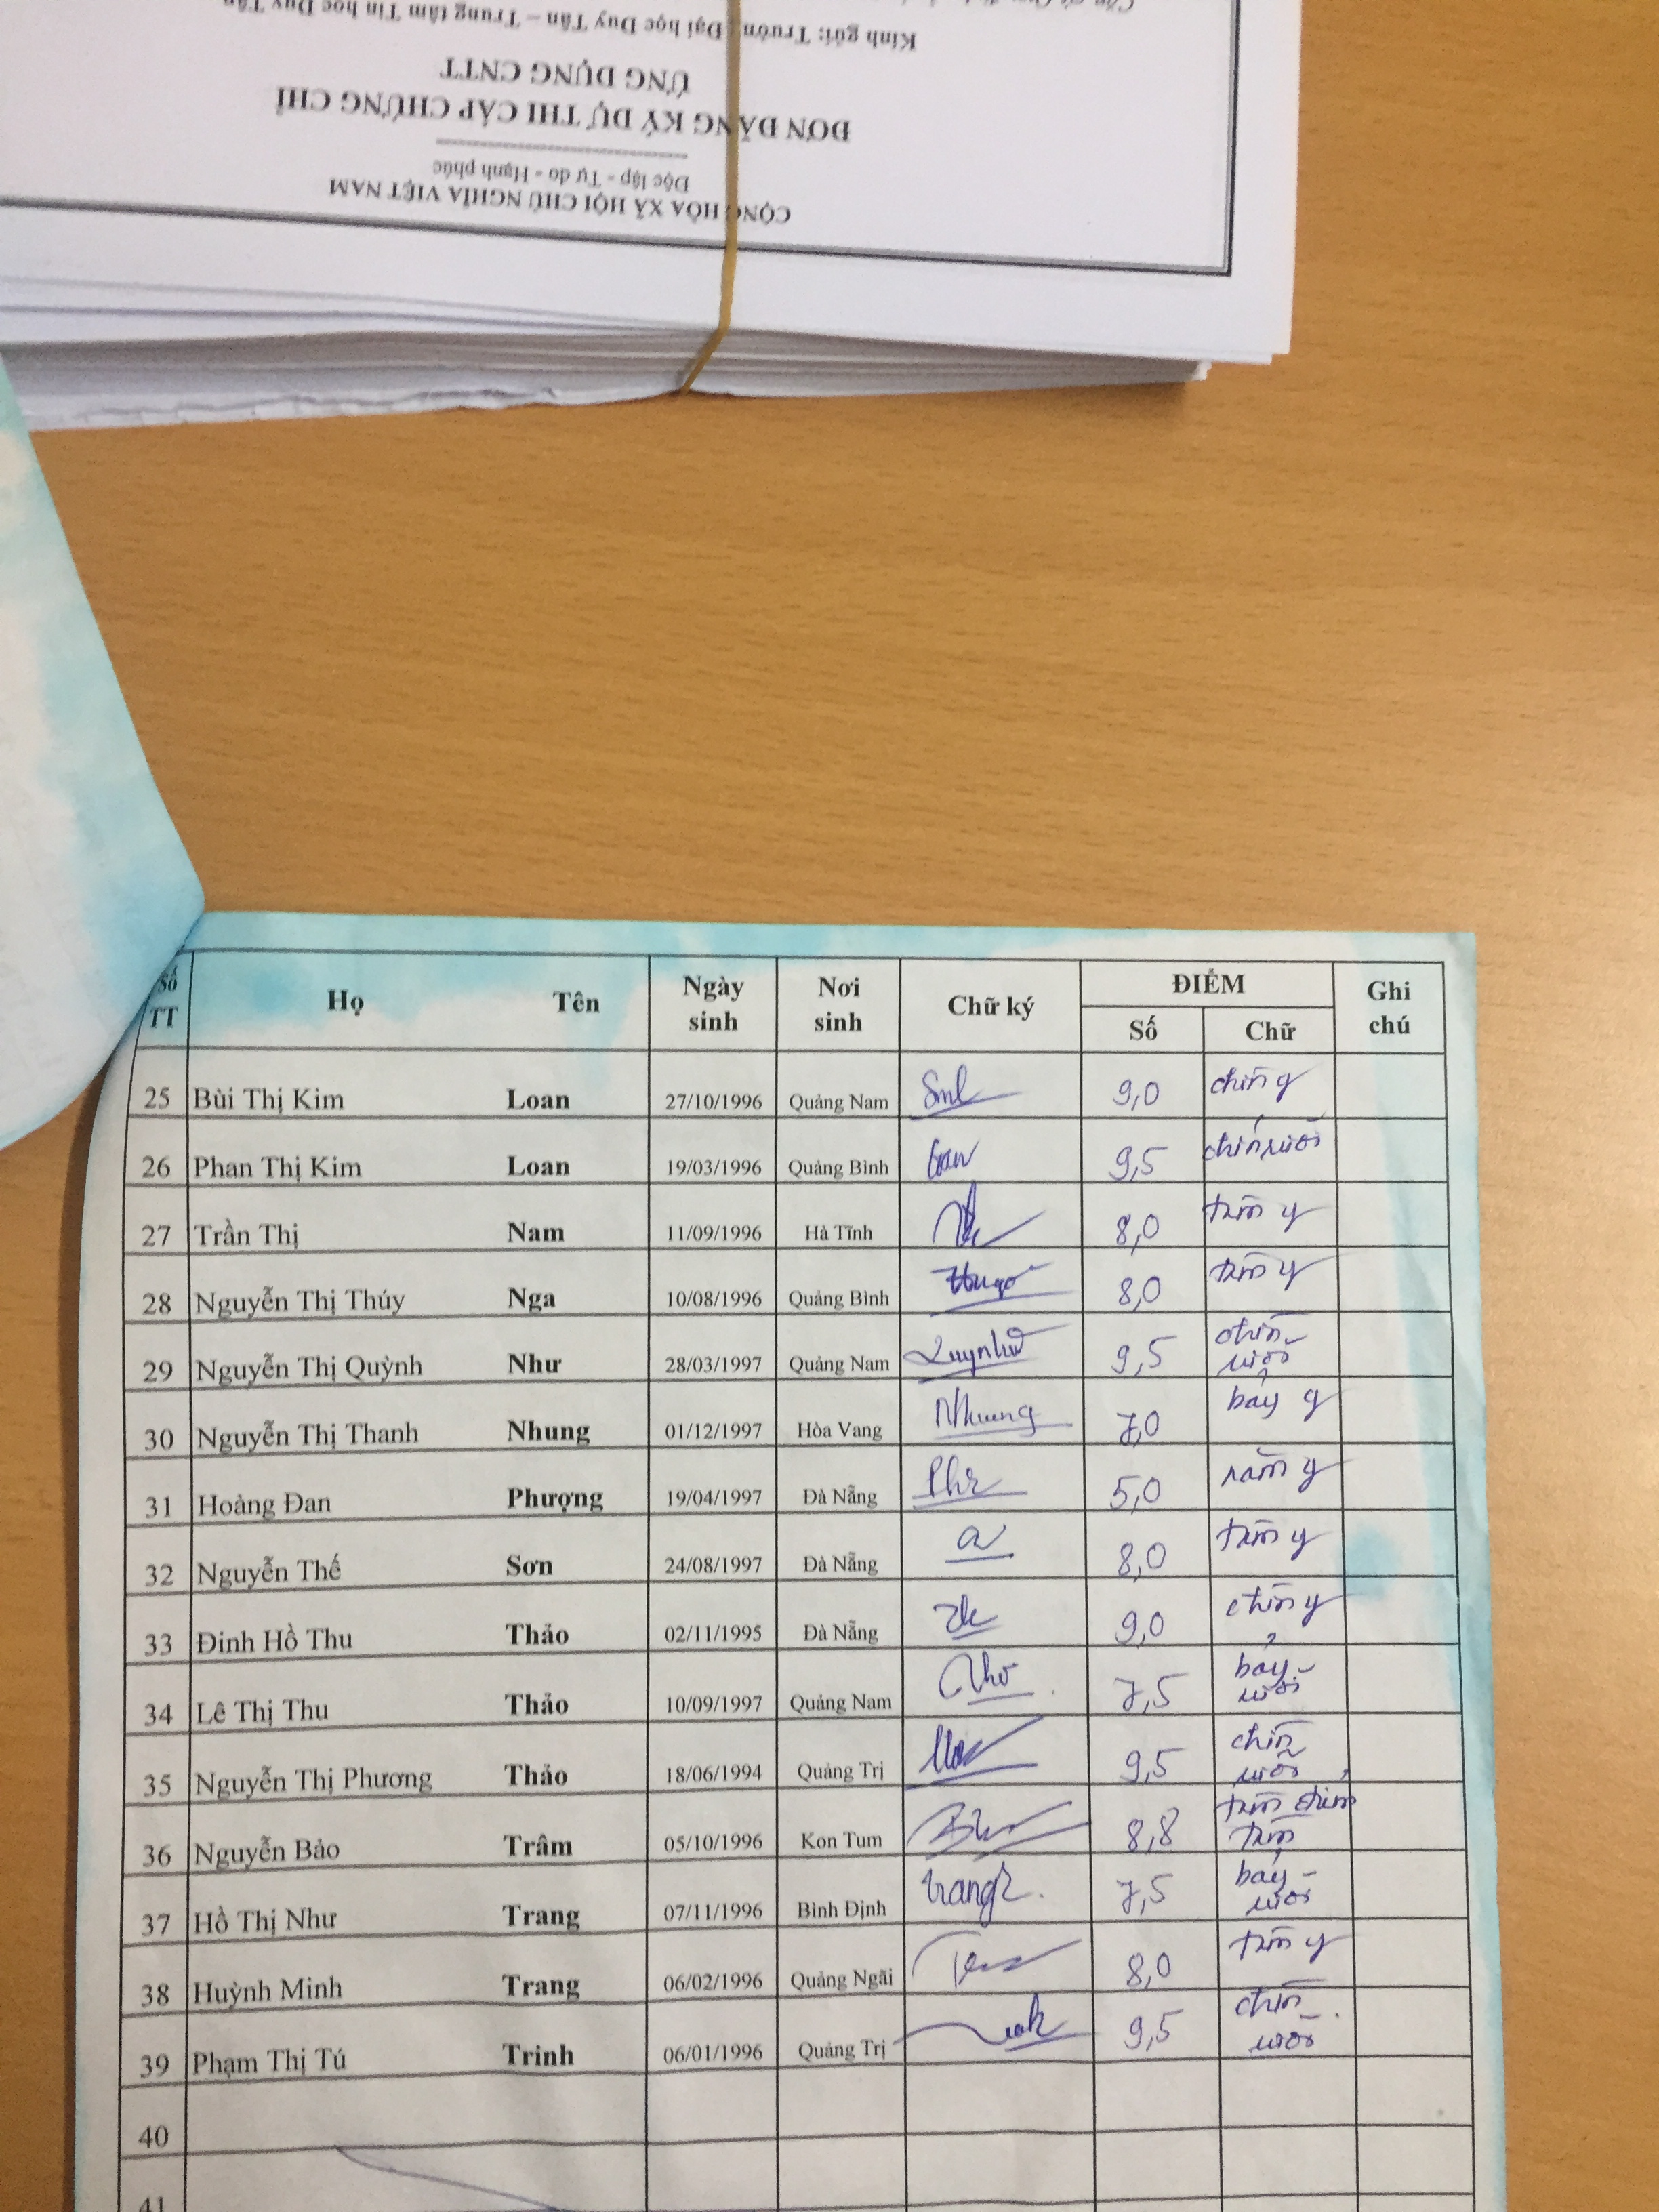 CỘNG HÒA XÃ HỘI CHỦ NGHĨA VIỆT NAM
Độc lập - Tự do - Hạnh phúc
ĐƠN ĐĂNG KÝ DỰ THI CẤP CHỨNG CHỈ
ỨNG DỤNG CNTT
Kính gửi: Trường Đại học Duy Tân – Trung tâm Tin học Duy Tân
Số TT Họ Tên Ngày sinh Nơi sinh Chữ ký ĐIỂM Ghi chú
Số Chữ
25 Bùi Thị Kim Loan 27/10/1996 Quảng Nam 9,0 chín
26 Phan Thị Kim Loan 19/03/1996 Quảng Bình 9,5 chín rưỡi
27 Trần Thị Nam 11/09/1996 Hà Tĩnh 8,0 tám
28 Nguyễn Thị Thúy Nga 10/08/1996 Quảng Bình 8,0 tám
29 Nguyễn Thị Quỳnh Như 28/03/1997 Quảng Nam Quynhư 9,5 chín rưỡi
30 Nguyễn Thị Thanh Nhung 01/12/1997 Hòa Vang Nhung 7,0 bảy
31 Hoàng Đan Phượng 19/04/1997 Đà Nẵng 5,0 năm
32 Nguyễn Thế Sơn 24/08/1997 Đà Nẵng 8,0 tám
33 Đinh Hồ Thu Thảo 02/11/1995 Đà Nẵng 9,0 chín
34 Lê Thị Thu Thảo 10/09/1997 Quảng Nam 7,5 bảy rưỡi
35 Nguyễn Thị Phương Thảo 18/06/1994 Quảng Trị 9,5 chín rưỡi
36 Nguyễn Bảo Trâm 05/10/1996 Kon Tum 8,8 tám chấm tám
37 Hồ Thị Như Trang 07/11/1996 Bình Định trang 7,5 bảy rưỡi
38 Huỳnh Minh Trang 06/02/1996 Quảng Ngãi 8,0 tám
39 Phạm Thị Tú Trinh 06/01/1996 Quảng Trị 9,5 chín rưỡi
40
41